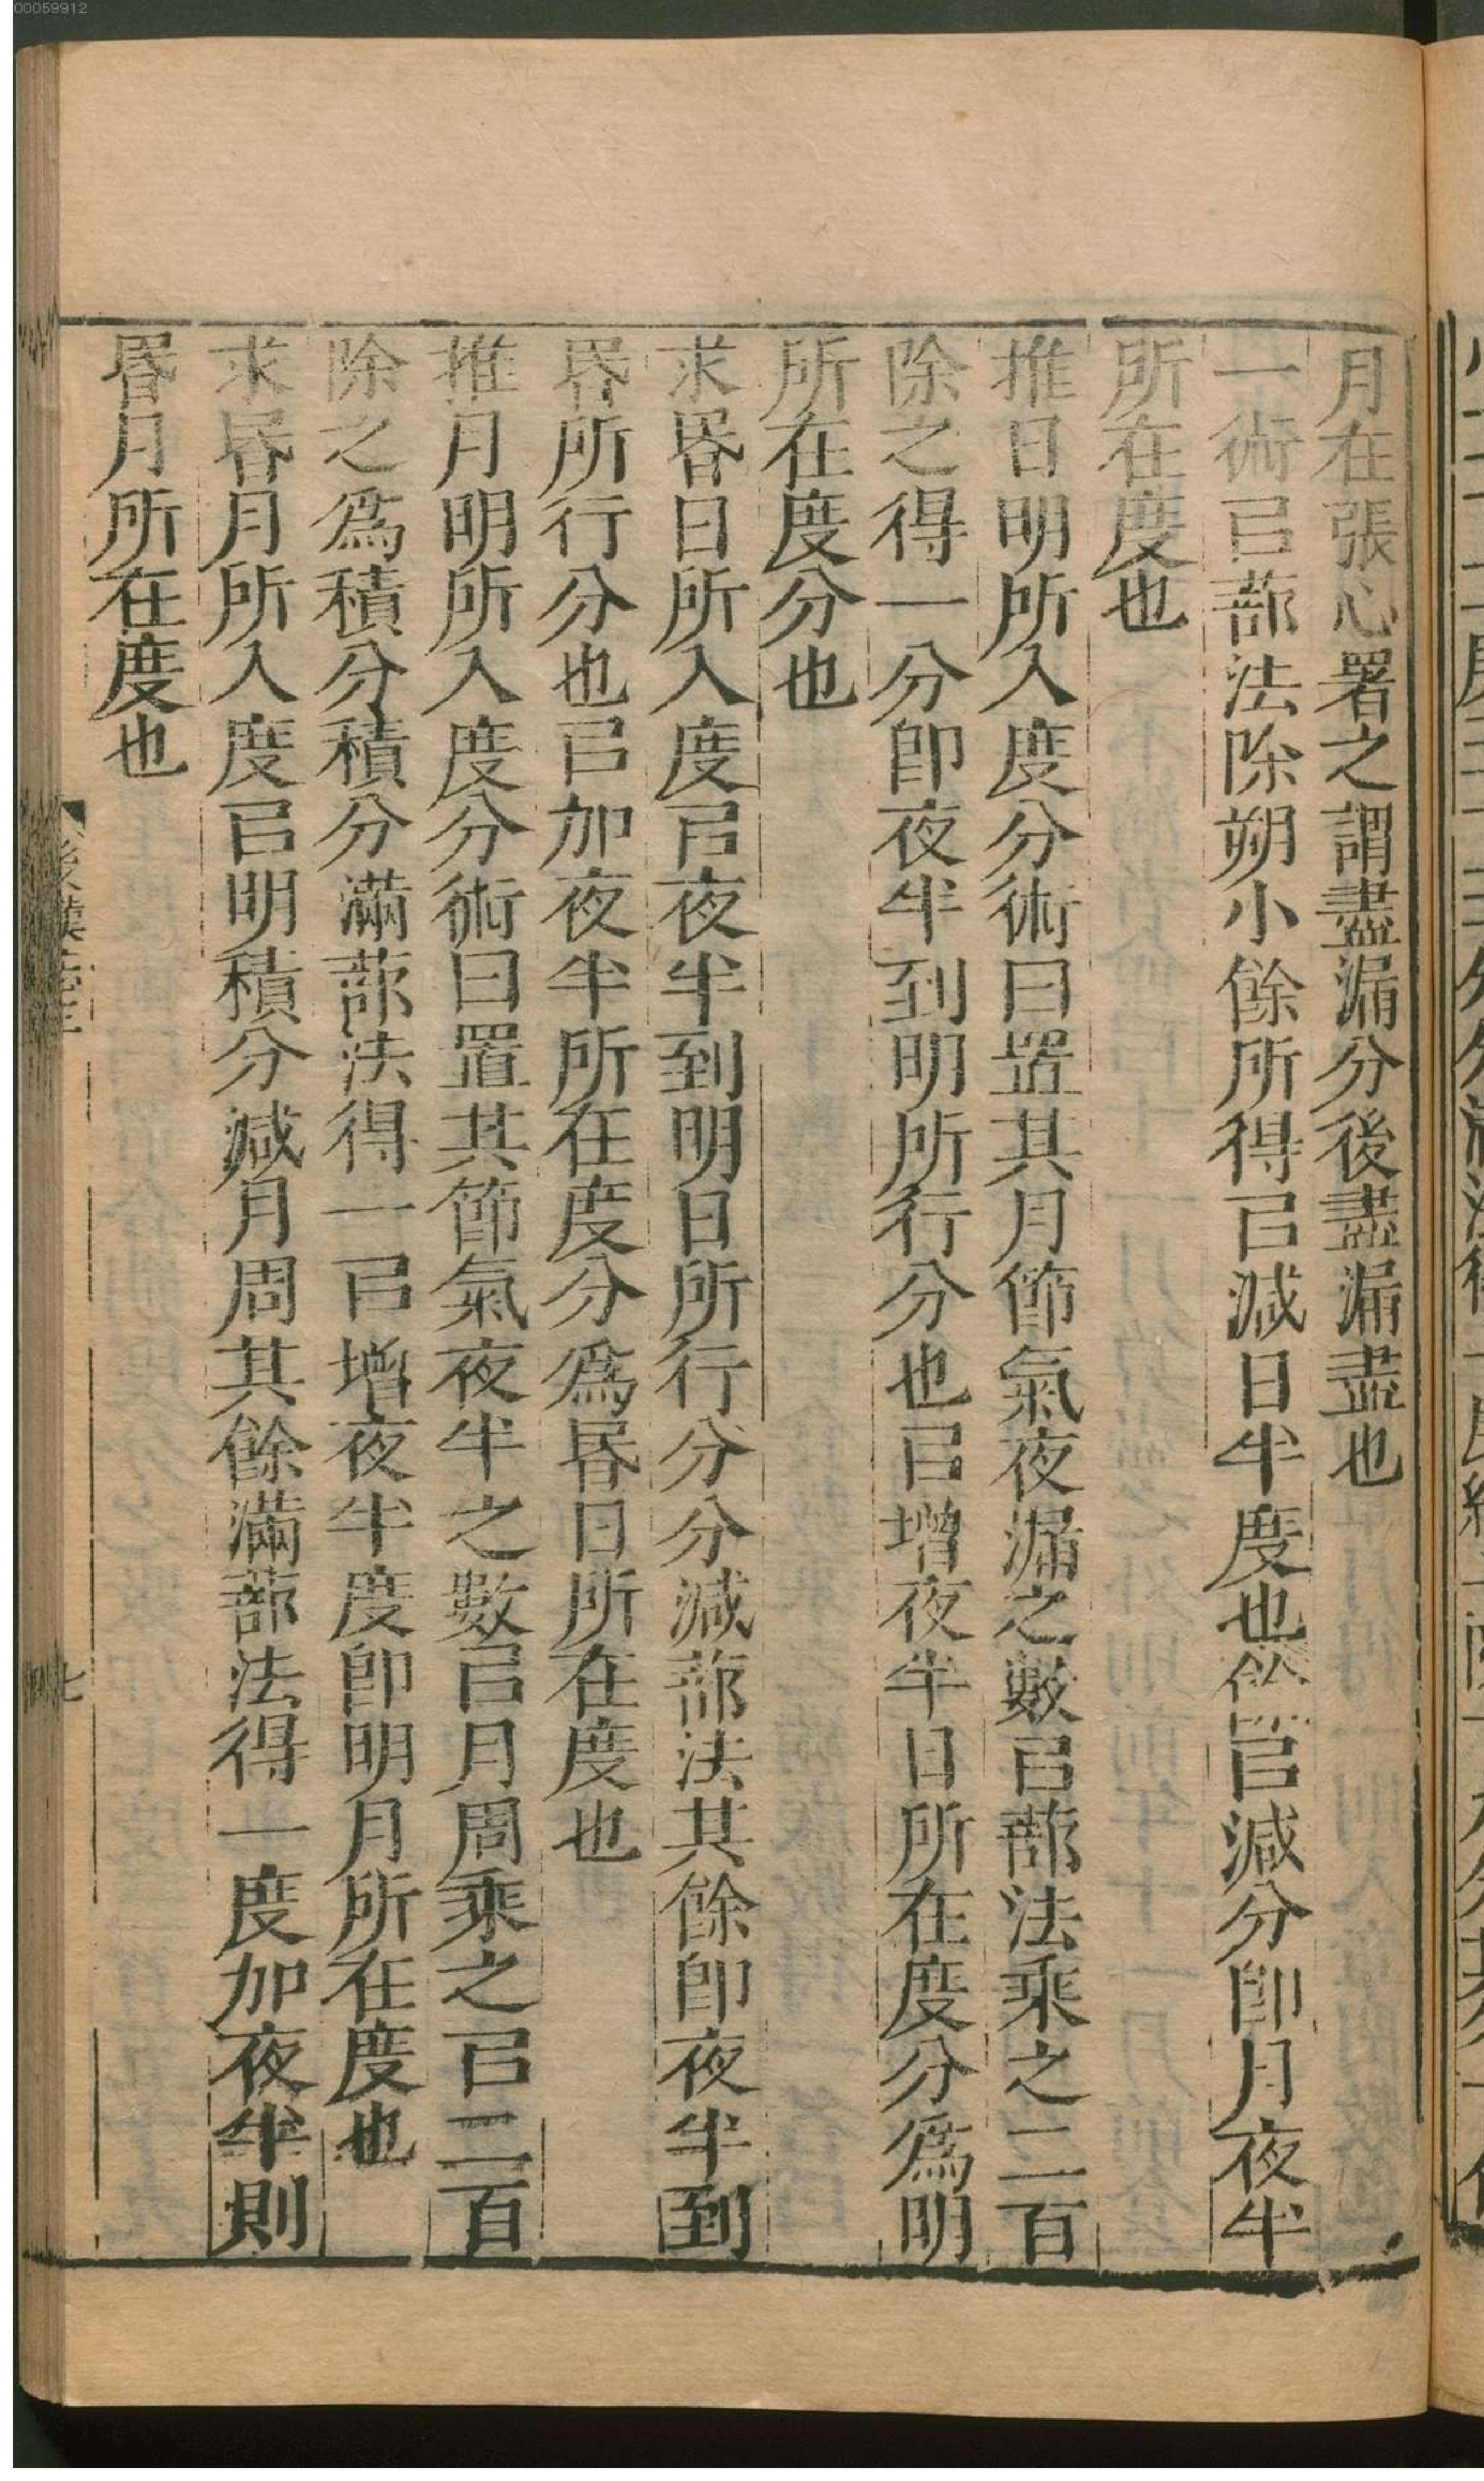 00059912
月在張心署之謂盡漏分後盡漏盡也
一術㠯蔀法除朔小餘所得㠯減日半度也餘㠯減分卽月夜半
所在度也
推日明所入度分術曰置其月節氣夜漏之數㠯蔀法乘之二百
除之得一分卽夜半到明所行分也㠯增夜半日所在度分爲明
所在度分也
求昬日所入度㠯夜半到明日所行分分減蔀法其餘卽夜半到
昬所行分也㠯加夜半所在度分爲昬日所在度也
推月明所入度分術曰置其節氣夜半之數㠯月周乘之㠯二百
除之爲積分積分滿蔀法得一㠯增夜半度卽明月所在度也
求昬月所入度㠯明積分減月周其餘滿蔀法得一度加夜半則
昬月所在度也
後漢志三
七